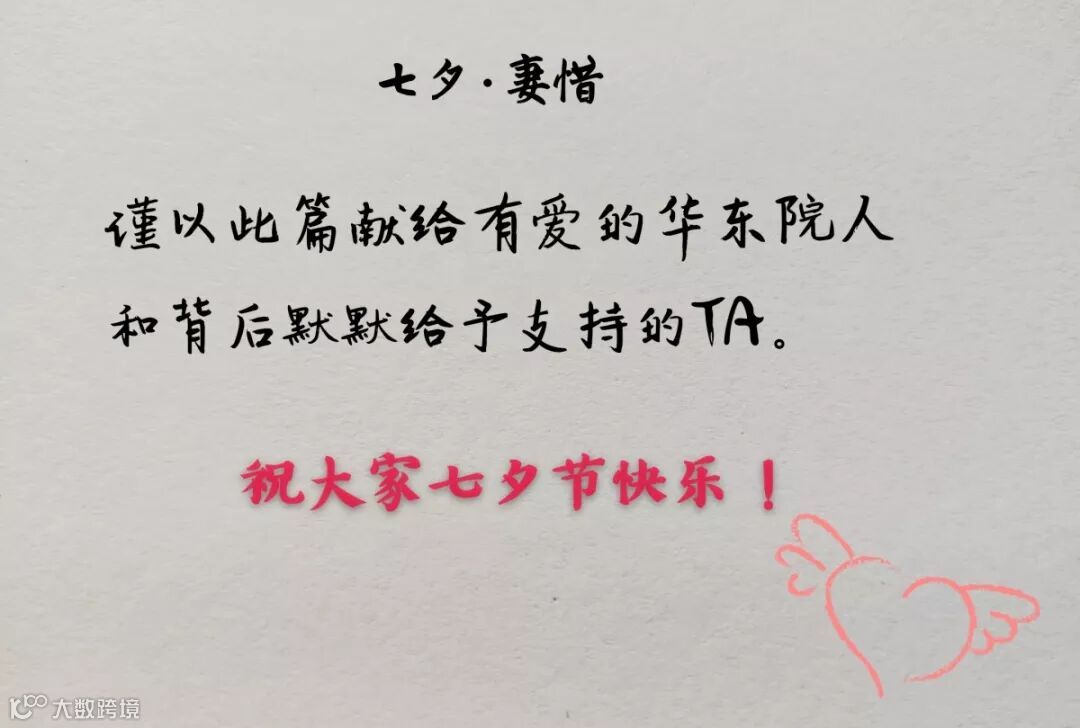 七夕·妻惜
谨以此篇献给有爱的华东院人
和背后默默给予支持的TA。
祝大家七夕节快乐！
大数跨境